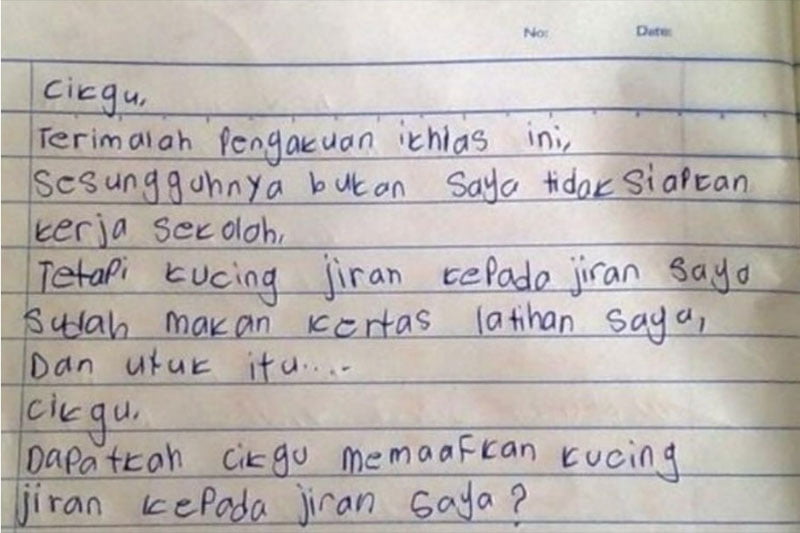 No: Date:
Cikgu,
Terimalah Pengakuan ikhlas ini,
Sesungguhnya bukan saya tidak siapkan
kerja sekolah,
Tetapi kucing jiran kepada jiran saya
Sudah makan kertas latihan saya,
Dan utuk itu....
Cikgu,
Dapatkah cikgu memaafkan kucing
jiran kepada jiran saya?